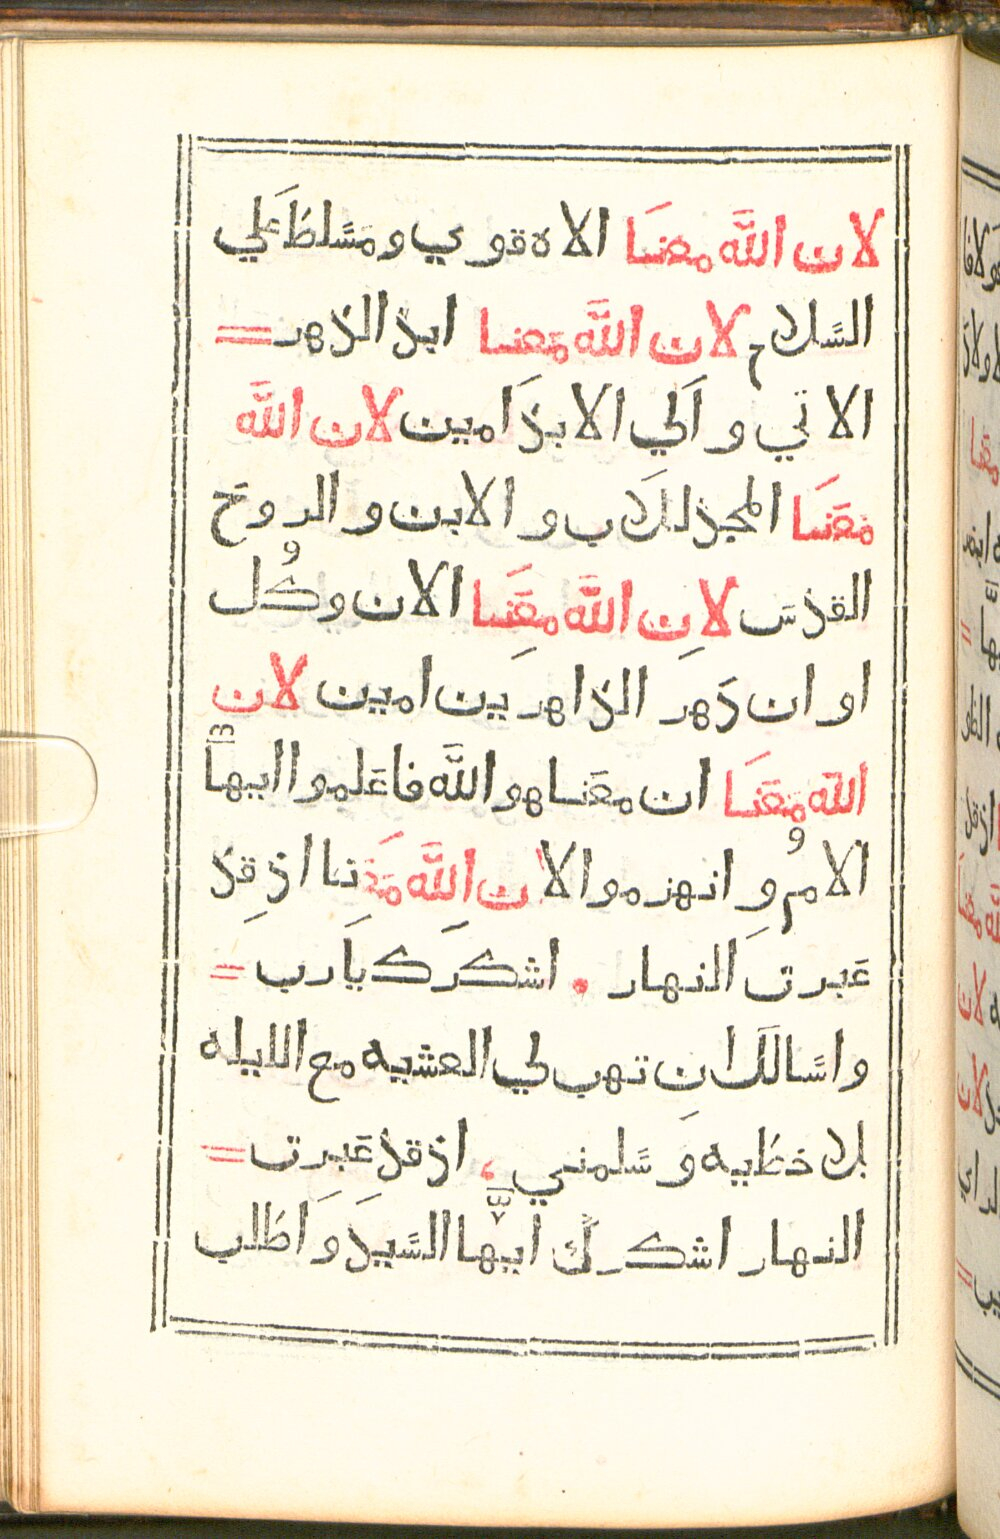 لان اللّه معنَا الاه قوي ومَسًلطَ علي
السًلاح لان اللّه مَعنا ابذ الذهر =
الاتي وآلي الابذَ امين لان اللّه
معَنَا المجذ للَاب و الابن و الروحَ
القذسَ لانِ اللّه معَنِا الان وكُل
اوان دَهر الذاهرين امين لان
اللّه معَنَا ان معَنا هو اللّه فاعَلموا اايها
الامرُ وِانهزموا الان اللّه مَعَنا اذ قِذ
عَبرت النهار • اشكرَك يَارب =
واسًالَك انِ تهب لي العشيه مع الليله
بلا خطَيه وَ سًلمني ، اذ قذ عَبِرت =
النهار اشكرك ايها السًيِدَ واطَلب